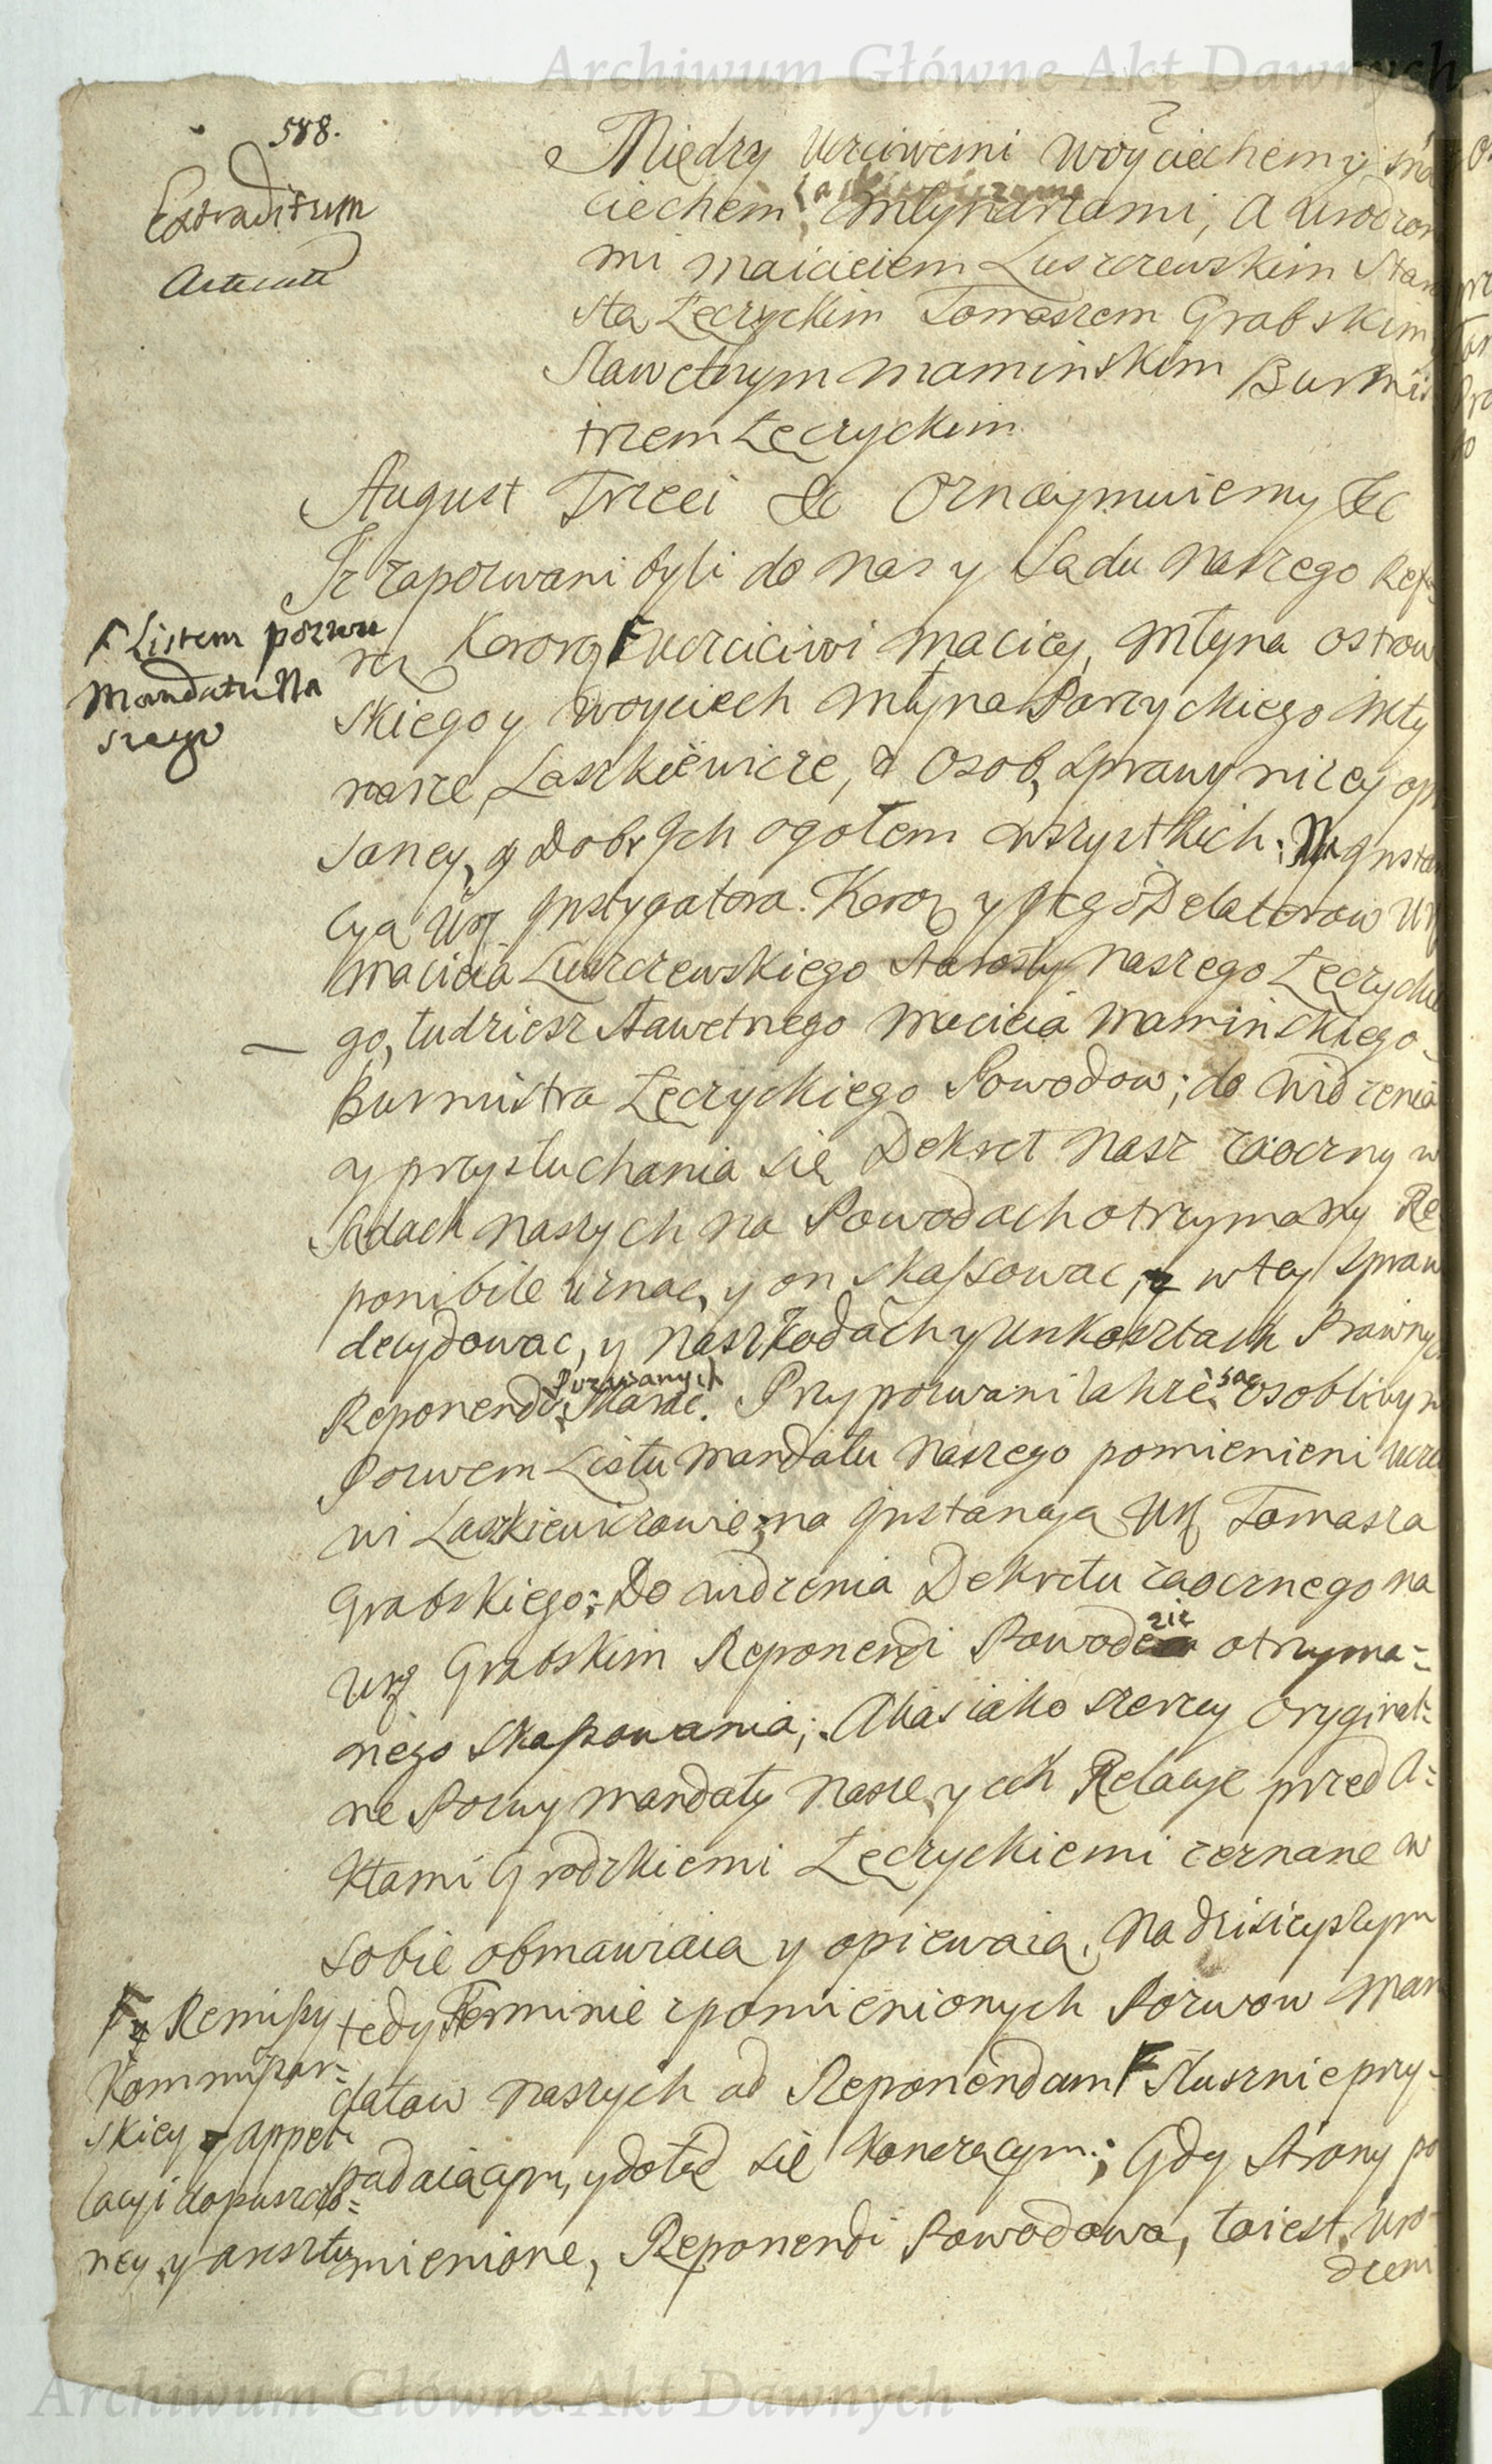 Archiwum Główne Akt Dawnych
588.
Extraditum
Miedzy Ucciwemi Woyciechem y Ma
ciechem Laszkiewiczama Młynarzami, A Urodzon
mi Maicieiem Luszczewskim Staro
stą Łęczyckim Tomaszem Grabskim
Sławetnym Maminskim Burmis
trzem Łęczyckim
August Trzeci &c Oznaymuiemy &c
Iz zapozwani byli do nas y Sądu Naszego
F Listem pozwu
Mandatu Na
szego
Koronq F Ucciciwi Maciey, Młyna Ostrow
skiego y Woyciech Młyna Parzyckiego Mły
narze Laszkiewicze, z Osob, Sprawy nizey opi
saney, y Dobr Ich ogołem wszystkich: Na Instan
cyą Urz Instygatora Koroz y Iego Delatorow Urz
Macieia Luszczewskiego Starosty Naszego Łęczyckie
go, tudziesz Sławetnego Macieia Maminskiego
Burmistra Łęczyckiego Powodow; do widzenia
y przysłuchania się Dekret Nasz zaoczny w
Sądach Naszych na Powodach otrzymany Re
ponibile uznac, y on skassowac, w tey spraw
decydowac, y Naszkodach y Unkosztach Prawnyc
Reponendo Pozwanych skarac. Przypozwani takze są osobliwym
Pozwem Listu Mandatu Naszego pomienieni Ucci
wi Laszkiewiczowie, na Instancyą Urz Tomasza
Grabskiego; Do widzenia Dekretu zaocznego na
Urz Grabskim Reponendi Powodzie otrzyma=
nego Skassowania; Alias iako szerzey Oryginal=
ne Pozwy Mandaty Nasze, y ich Relacye przed A=
ktami Grodzkiemi Łęczyckiemi zeznane w
sobie obmawiaią y opiewaią. Na dzisieyszym
F y Remissy
Kommissar=
skiey y Appel=
lacyi dopuszczo=
ney, y aresztu
tedy Terminie z pomienionych Pozwow Man
datow Naszych ad Reponendam F Słusznie przy=
padaiącym, y dotąd się Konczącym; Gdy Strony po
mienione, Reponendi Powodowa, to iest, Uro=
dzeni
Archiwum Główne Akt Dawnych